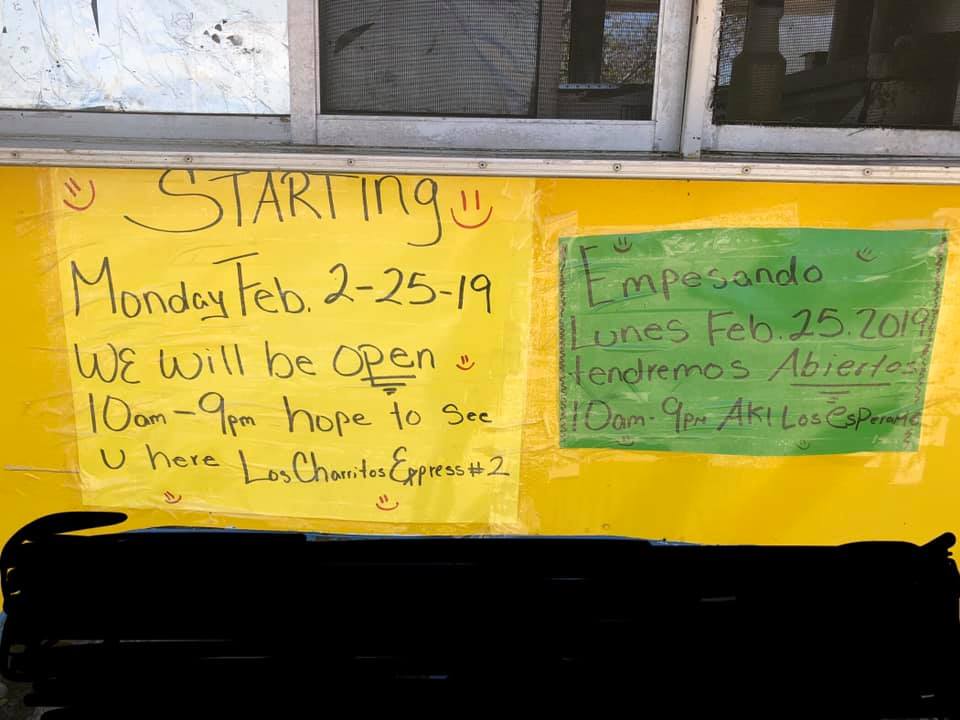 STARTing
Monday Feb. 2-25-19
WE will be OPEn
10am-9pm hope to See
U here Los Charritos Express #2
Empesando
Lunes Feb. 25. 2019
tendremos Abiertos
10am-9pm AKI Los esperamos